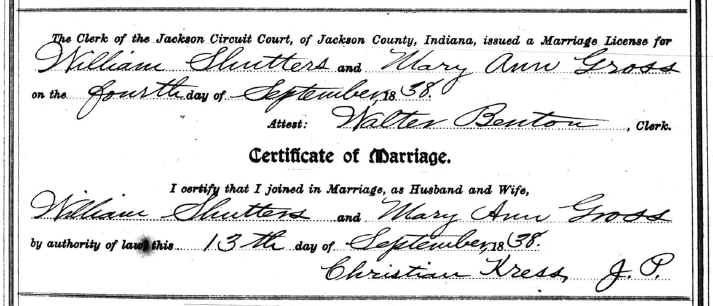 The Clerk of the Jackson Circuit Court, of Jackson County, Indiana, issued a Marriage License for
William Shutters and Mary Ann Gross
on the fourth day of September, 1838.
Attest: Walter Benton, Clerk.
Certificate of Marriage.
I certify that I joined in Marriage, as Husband and Wife,
William Shutters and Mary Ann Gross
by authority of law, this 13th day of September, 1838.
Christian Kress, J. P.